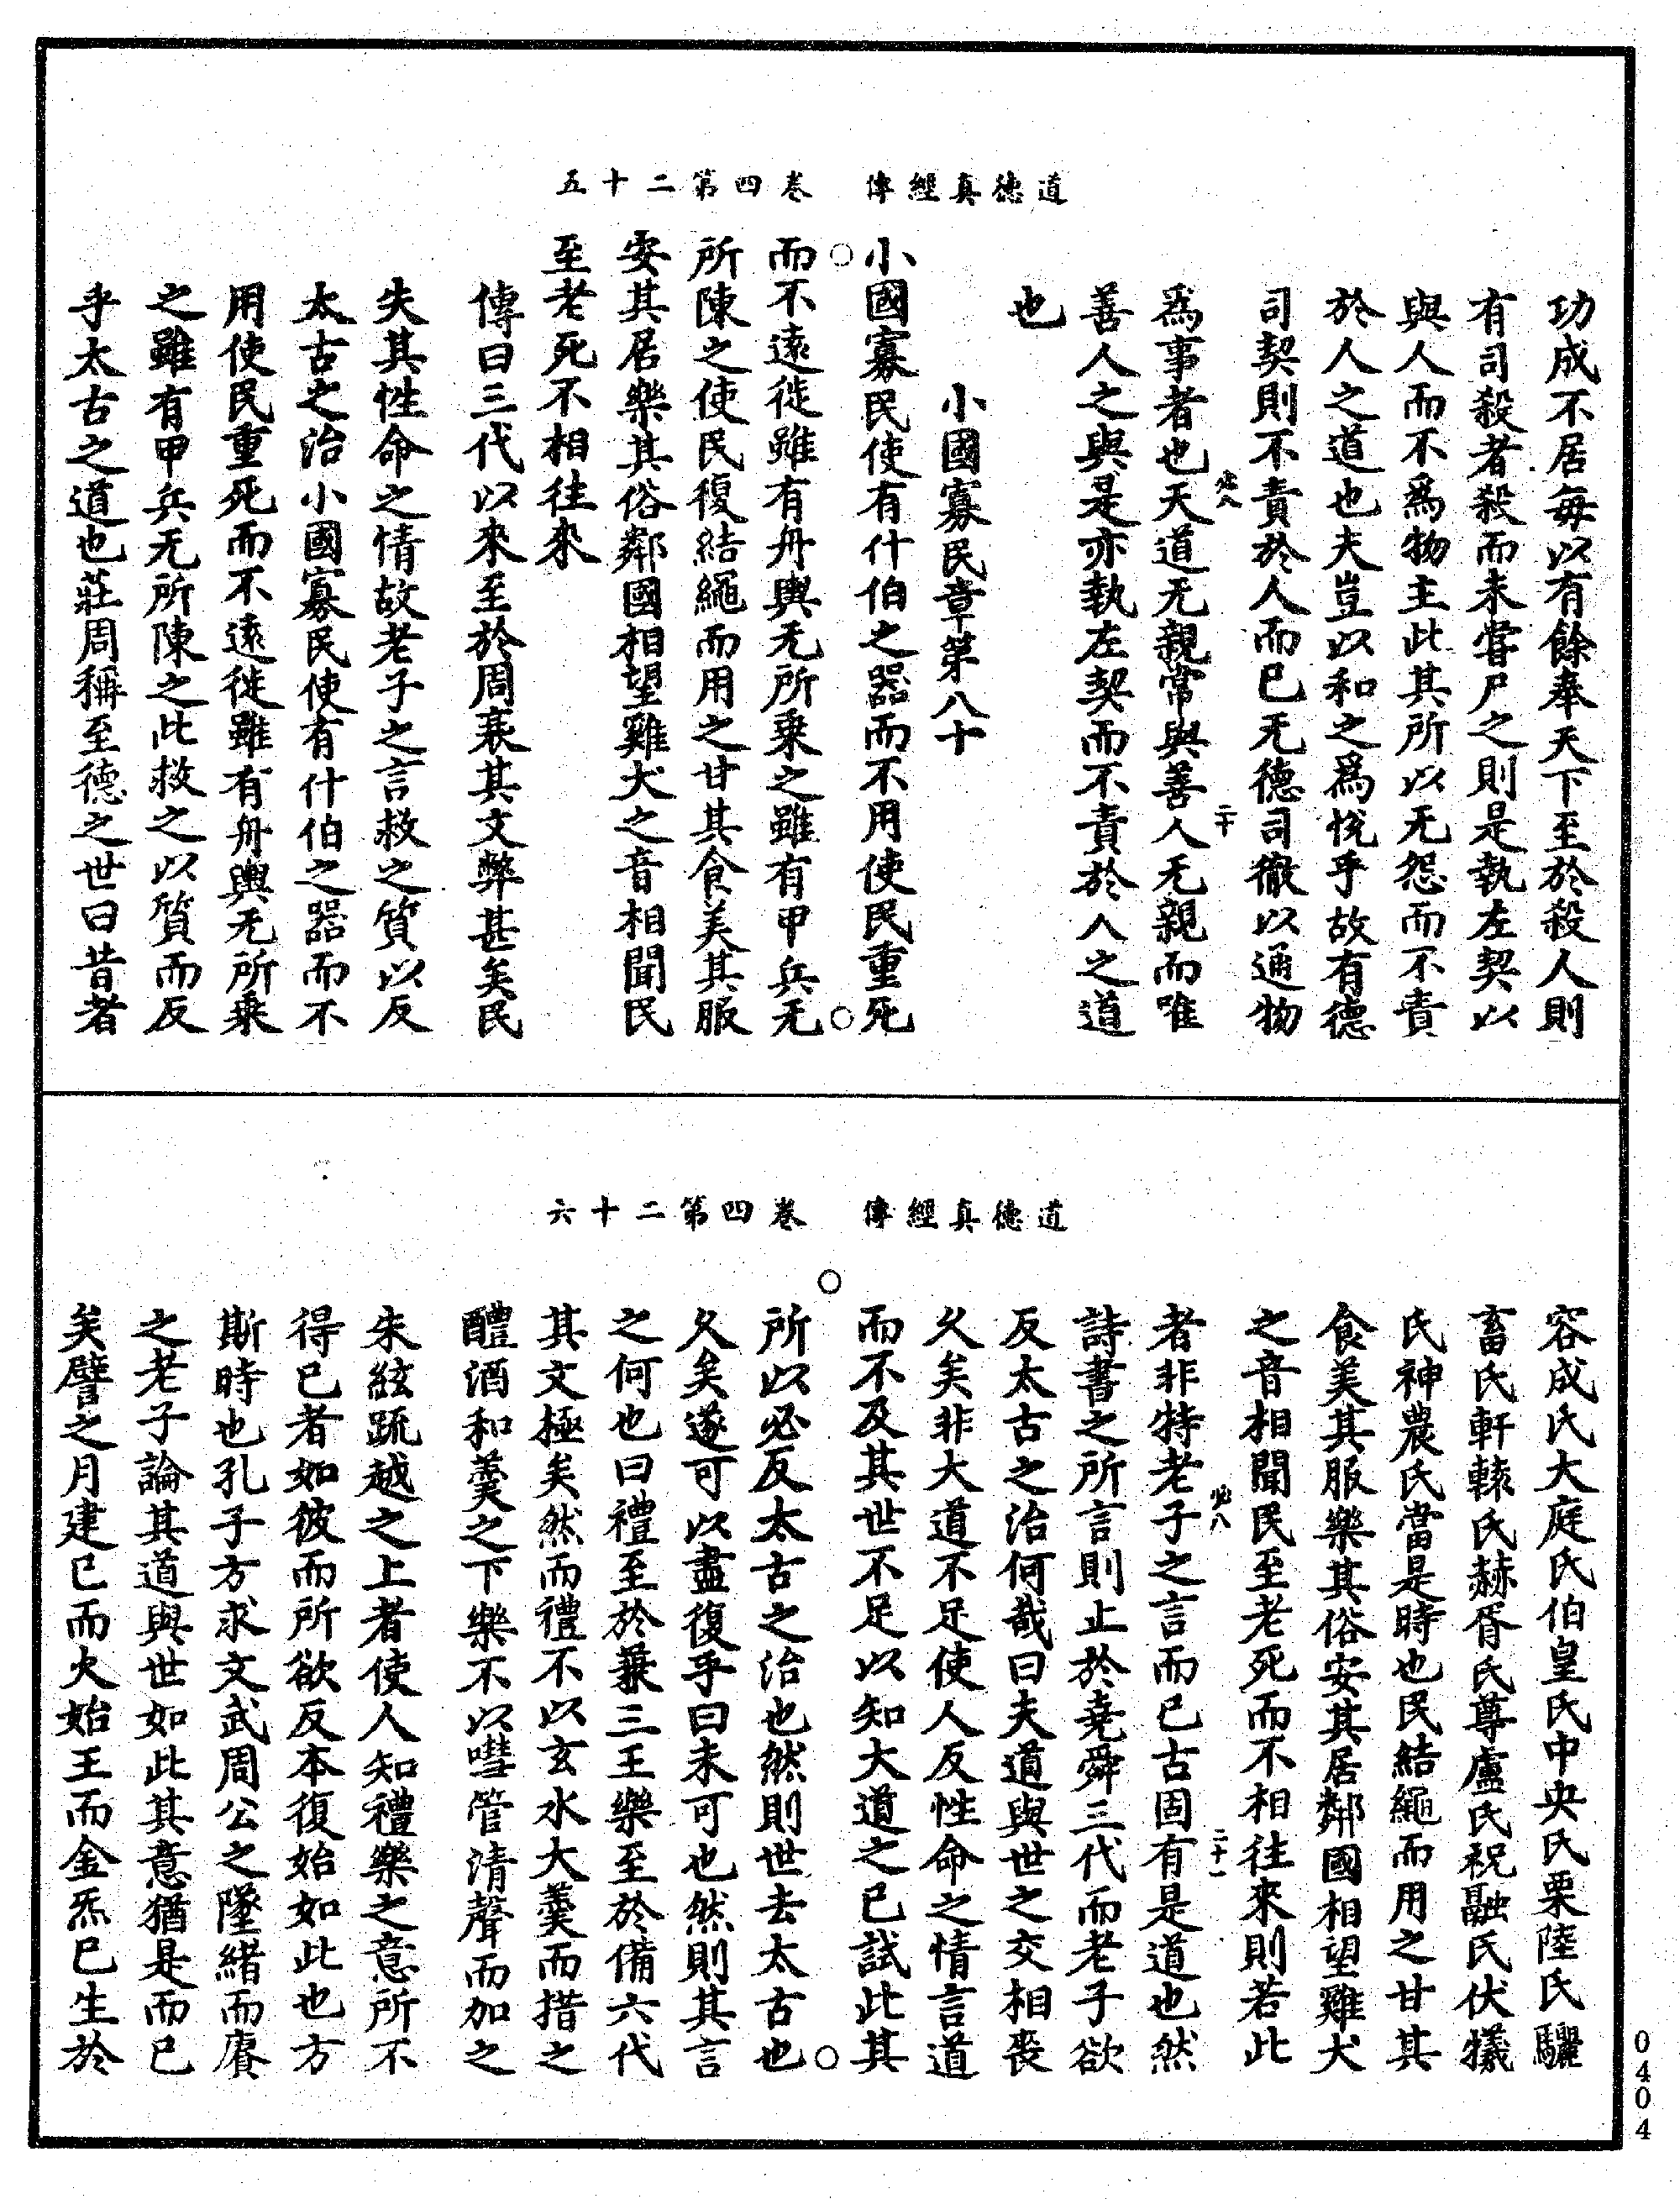 道德真經傳　卷四第二十五
功成不居每以有餘奉天下至於殺人則
有司殺者殺而未嘗尸之則是執左契以
與人而不爲物主此其所以无怨而不責
於人之道也夫豈以和之爲悅乎故有德
司契則不責於人而已无德司徹以通物
必八　二十
爲事者也天道无親常與善人无親而唯
善人之與是亦執左契而不責於人之道
也
小國寡民章第八十
小國寡民使有什伯之器而不用使民重死
而不遠徙雖有舟輿无所乗之雖有甲兵无
所陳之使民復結繩而用之甘其食美其服
安其居樂其俗鄰國相望雞犬之音相聞民
至老死不相往來
傳曰三代以來至於周衰其文弊甚矣民
失其性命之情故老子之言救之質以反
太古之治小國寡民使有什伯之器而不
用使民重死而不遠徙雖有舟輿无所乗
之雖有甲兵无所陳之此救之以質而反
乎太古之道也莊周稱至德之世曰昔者
道德真經傳　卷四第二十六
容成氏大庭氏伯皇氏中央氏栗陸氏驪
畜氏軒轅氏赫胥氏尊盧氏祝融氏伏犧
氏神農氏當是時也民結繩而用之甘其
食美其服樂其俗安其居鄰國相望雞犬
之音相聞民至老死而不相往來則若此
必八　二十一
者非特老子之言而已古固有是道也然
詩書之所言則止於堯舜三代而老子欲
反太古之治何哉曰夫道與世之交相喪
久矣非大道不足使人反性命之情言道
而不及其世不足以知大道之已試此其
所以必反太古之治也然則世去太古也
久矣遂可以盡復乎曰未可也然則其言
之何也曰禮至於兼三王樂至於備六代
其文極矣然而禮不以玄水大羹而措之
醴酒和羹之下樂不以嘒管清聲而加之
朱絃疏越之上者使人知禮樂之意所不
得已者如彼而所欲反本復始如此也方
斯時也孔子方求文武周公之墜緒而賡
之老子論其道與世如此其意猶是而已
矣譬之月建巳而火始王而金炁已生於
0404